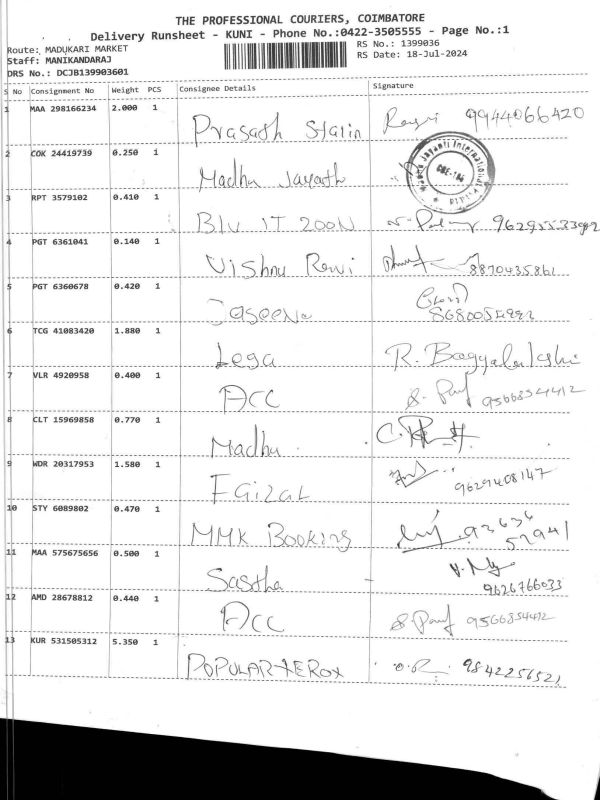 THE PROFESSIONAL COURIERS, COIMBATORE
Delivery Runsheet - KUNI - Phone No.:0422-3505555 - Page No.:1
Route: MADUKARI MARKET
RS No.: 1399036
Staff: MANIKANDARAJ
RS Date: 18-Jul-2024
DRS No.: DCJB139903601
S No Consignment No Weight PCS Consignee Details Signature
1 MAA 298166234 2.000 1 Prasath Stalin 9944066420
2 COK 24419739 0.250 1 Madhu Jayanth
Jayanti International
CBE-
3 RPT 3579102 0.410 1 BLU IT ZOON
4 PGT 6361041 0.140 1 Vishnu Ravi 8870435861
5 PGT 6360678 0.420 1 Jaseena
6 TCG 41083420 1.880 1 Lega R. Bagyalakshi
7 VLR 4920958 0.400 1 ACC 9566854412
8 CLT 15969858 0.770 1 Madhu
9 WDR 20317953 1.580 1 Faizal 9629408147
10 STY 6089802 0.470 1 MMK Booking 93636
52941
11 MAA 575675656 0.500 1 Sastha
9626766033
12 AMD 28678812 0.440 1 ACC 9566854412
13 KUR 531505312 5.350 1 POPULAR XEROX 9842256521